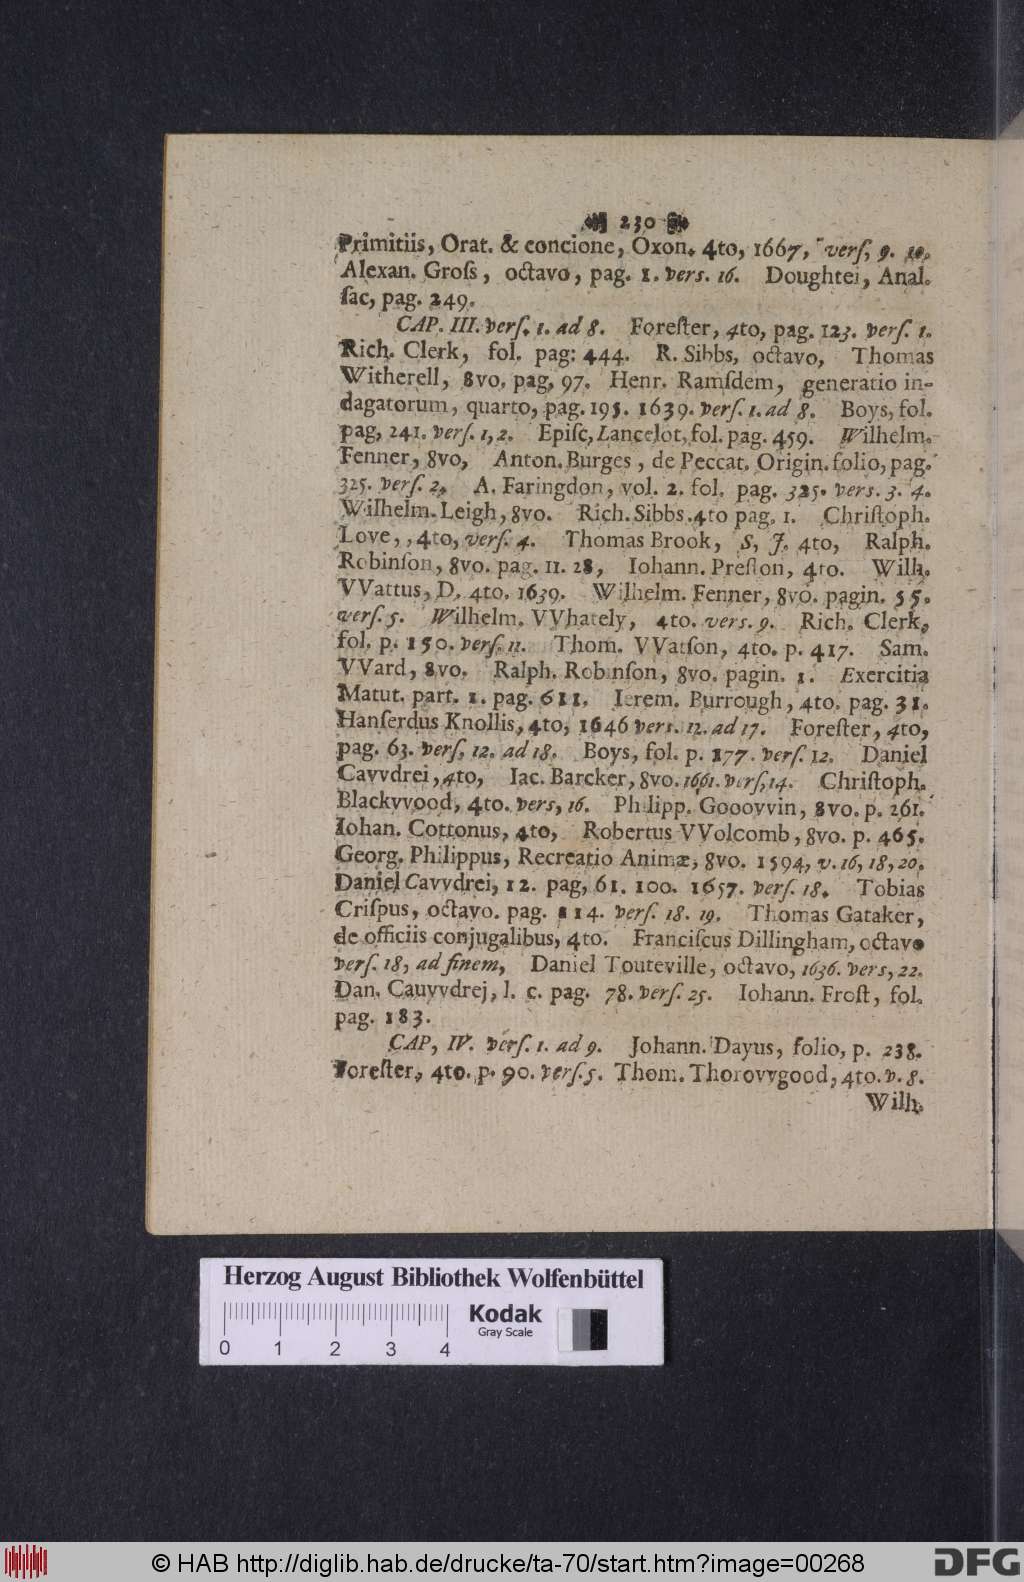 230
Primitiis, Orat. & concione, Oxon. 4to, 1667, verſ, 9. 10.
Alexan. Groſs, octavo, pag. 1. vers. 16. Doughtei, Anal.
ſac, pag. 249.
CAP. III. verſ. 1. ad 8. Foreſter, 4to, pag. 123. verſ. 1.
Rich. Clerk, fol. pag: 444. R. Sibbs, octavo, Thomas
Witherell, 8vo. pag, 97. Henr. Ramſdem, generatio in-
dagatorum, quarto, pag. 195. 1639. verſ. 1. ad 8. Boys, fol.
pag, 241. verſ. 1, 2. Epiſc, Lancelot, fol. pag. 459. Wilhelm.
Fenner, 8vo, Anton. Burges, de Peccat. Origin. folio, pag.
325. verſ. 2. A. Faringdon, vol. 2. fol. pag. 325. vers. 3. 4.
Wilhelm. Leigh, 8vo. Rich. Sibbs. 4to pag. 1. Chriſtoph.
Love,, 4to, verſ. 4. Thomas Brook, S, J. 4to, Ralph.
Robinſon, 8vo. pag. 11. 28, Iohann. Preſton, 4to. Wilh.
VVattus, D. 4to. 1639. Wilhelm. Fenner, 8vo. pagin. 55.
verſ. 5. Wilhelm. VVhately, 4to. vers. 9. Rich. Clerk,
fol. p. 150. verſ. 11. Thom. VVatſon, 4to. p. 417. Sam.
VVard, 8vo. Ralph. Robinſon, 8vo. pagin. 1. Exercitia
Matut. part. 1. pag. 611. Ierem. Burrough, 4to. pag. 31.
Hanſerdus Knollis, 4to, 1646 vers. 12. ad 17. Foreſter, 4to,
pag. 63. verſ, 12. ad 18. Boys, fol. p. 177. verſ. 12. Daniel
Cavvdrei, 4to, Iac. Barcker, 8vo. 1661. verſ, 14. Chriſtoph.
Blackvvood, 4to. vers, 16. Philipp. Goooyvin, 8vo. p. 261.
Iohan. Cottonus, 4to, Robertus VVolcomb, 8vo. p. 465.
Georg. Philippus, Recreatio Animæ, 8vo. 1594, v. 16, 18, 20.
Daniel Cavvdrei, 12. pag, 61. 100. 1657. verſ. 18. Tobias
Criſpus, octavo. pag. 114. verſ. 18. 19. Thomas Gataker,
de officiis conjugalibus, 4to. Franciſcus Dillingham, octavo
verſ. 18, ad finem, Daniel Touteville, octavo, 1636. vers, 22.
Dan. Cauvvdrej, l. c. pag. 78. verſ. 25. Iohann. Froſt, fol.
pag. 183.
CAP, IV. verſ. 1. ad 9. Johann. Dayus, folio, p. 238.
Foreſter, 4to. p. 90. verſ. 5. Thom. Thorovvgood, 4to. v. 8.
Wilh.
Herzog August Bibliothek Wolfenbüttel
Kodak
Gray Scale
0 1 2 3 4
© HAB http://diglib.hab.de/drucke/ta-70/start.htm?image=00268
DFG